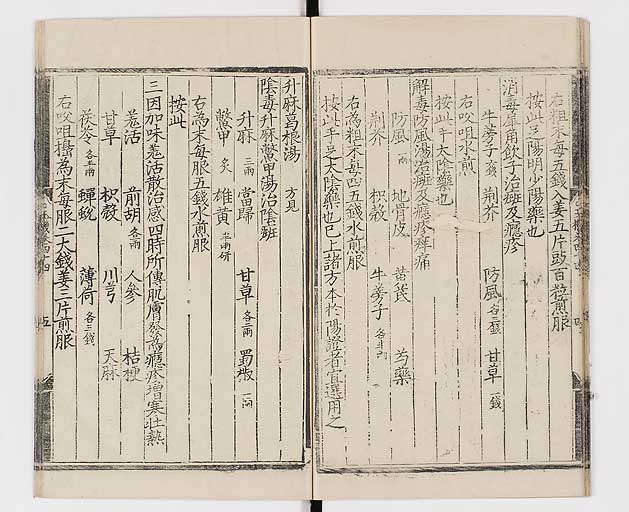 右粗末每五錢入姜五片豉百粒煎服
按此足陽明少陽藥也
消毒犀角飲子治斑及癮疹
牛蒡子 六錢 荆芥 防風 各三錢 甘草 一錢
右㕮咀水煎
按此手太陰藥也
解毒防風湯治斑及癮疹痒痛
防風 一兩 地骨皮 黃芪 芍藥
荆芥 枳殼 牛蒡子 各半兩
右為粗末每四五錢水煎服
按此手足太陰藥也已上諸方本於陽證者宜選用之
升麻葛根湯 方見
陰毒升麻鱉甲湯治陰斑
升麻 二兩 當歸 甘草 各二兩 蜀椒 一兩
鱉甲 炙 雄黃 半兩研
右為末每服五錢水煎服
按此
三因加味羗活散治感四時所傳肌膚發為癮疹增寒壯熱
羗活 前胡 各一兩 人參 桔梗
甘草 枳殼 川芎 天麻
茯苓 各五兩 蟬蛻 薄荷 各三錢
右㕮咀攝為末每服二大錢姜三片煎服